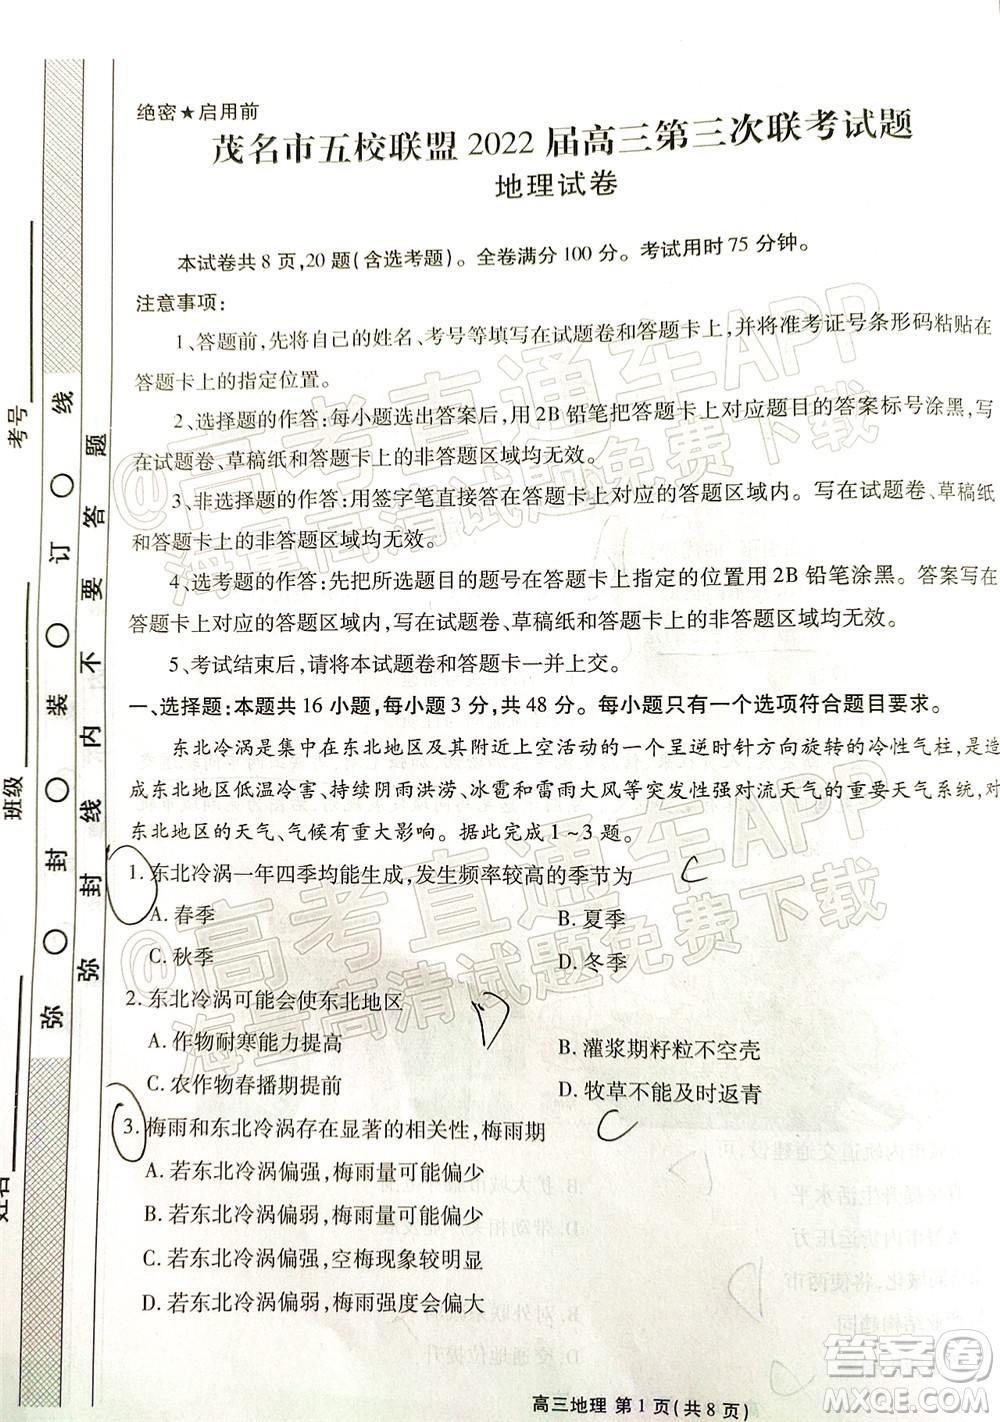 绝密★启用前
茂名市五校联盟2022届高三第三次联考试题
地理试卷
本试卷共8页,20题(含选考题)。全卷满分100分。考试用时75分钟。
注意事项:
1、答题前,先将自己的姓名、考号等填写在试题卷和答题卡上,并将准考证号条形码粘贴在
答题卡上的指定位置。
2、选择题的作答:每小题选出答案后,用2B铅笔把答题卡上对应题目的答案标号涂黑,写
在试题卷、草稿纸和答题卡上的非答题区域均无效。
3、非选择题的作答:用签字笔直接答在答题卡上对应的答题区域内。写在试题卷、草稿纸
和答题卡上的非答题区域均无效。
4、选考题的作答:先把所选题目的题号在答题卡上指定的位置用2B铅笔涂黑。答案写在
答题卡上对应的答题区域内,写在试题卷、草稿纸和答题卡上的非答题区域均无效。
5、考试结束后,请将本试题卷和答题卡一并上交。
一、选择题:本题共16小题,每小题3分,共48分。每小题只有一个选项符合题目要求。
东北冷涡是集中在东北地区及其附近上空活动的一个呈逆时针方向旋转的冷性气柱,是造
成东北地区低温冷害、持续阴雨洪涝、冰雹和雷雨大风等突发性强对流天气的重要天气系统,对
东北地区的天气、气候有重大影响。据此完成1~3题。
1. 东北冷涡一年四季均能生成,发生频率较高的季节为 C
A. 春季 B. 夏季
C. 秋季 D. 冬季
2. 东北冷涡可能会使东北地区 D
A. 作物耐寒能力提高 B. 灌浆期籽粒不空壳
C. 农作物春播期提前 D. 牧草不能及时返青
3. 梅雨和东北冷涡存在显著的相关性,梅雨期 C
A. 若东北冷涡偏强,梅雨量可能偏少
B. 若东北冷涡偏弱,梅雨量可能偏少
C. 若东北冷涡偏强,空梅现象较明显
D. 若东北冷涡偏弱,梅雨强度会偏大
高三地理 第1页(共8页)
考号
班级
姓名
弥 封 装 订 线
弥 封 线 内 不 要 答 题
@高考直通车APP
海量高清试题免费下载
@高考直通车APP
海量高清试题免费下载
答案圈
MXQE.COM